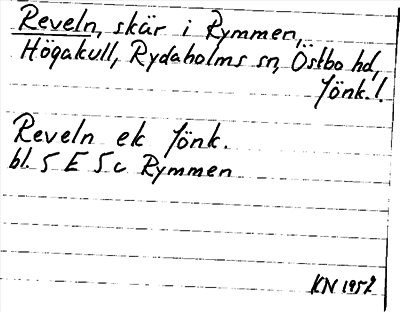 Reveln, skär i Rymmen,
Högakull, Rydaholms sn, Östbo hd,
Jönk. l.
Reveln ek Jönk.
bl. 5 E 5 c Rymmen
KN 1952